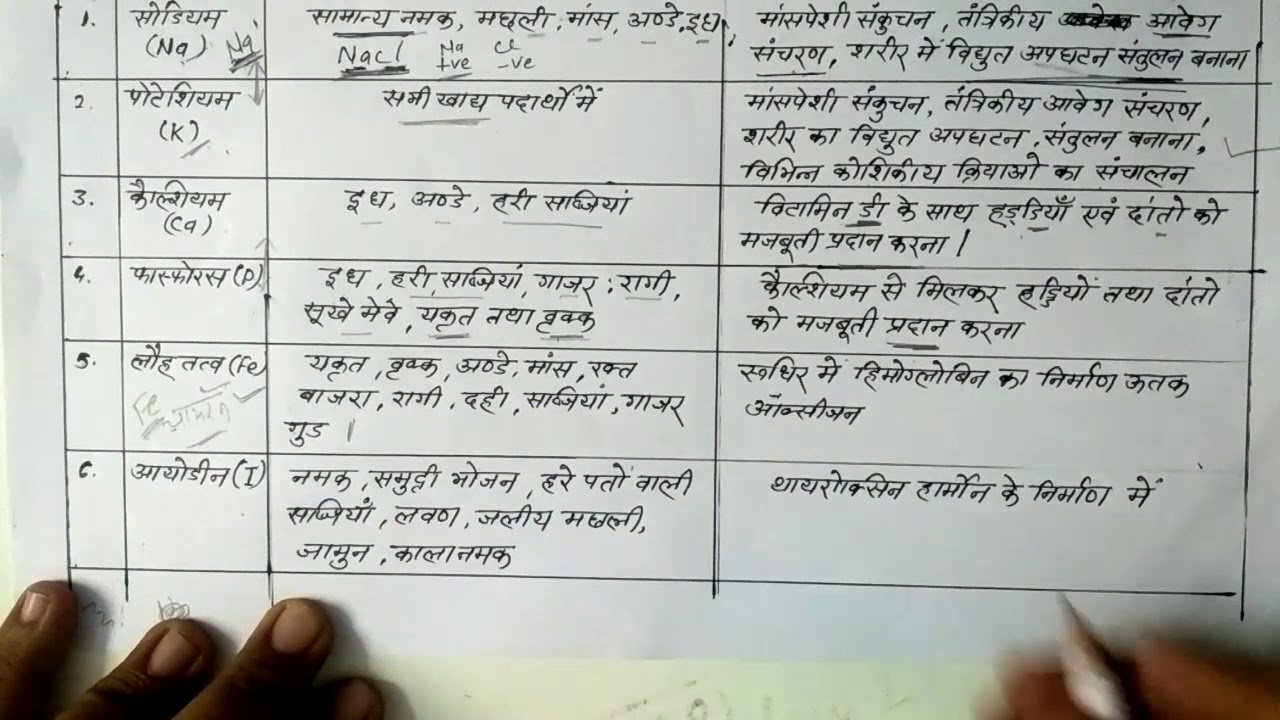 1. सोडियम (Na) Na
सामान्य नमक, मछली, मांस, अण्डे, दूध,
NaCl Na +ve Cl -ve
मांसपेशी संकुचन, तंत्रिकीय आवेग
संचरण, शरीर में विद्युत अपघटन संतुलन बनाना
2. पोटेशियम (K)
सभी खाद्य पदार्थों में
मांसपेशी संकुचन, तंत्रिकीय आवेग संचरण,
शरीर का विद्युत अपघटन, संतुलन बनाना,
विभिन्न कोशिकीय क्रियाओं का संचालन
3. कैल्शियम (Ca)
दूध, अण्डे, हरी सब्जियां
विटामिन डी के साथ हड्डियाँ एवं दांतो को
मजबूती प्रदान करना।
4. फास्फोरस (P)
दूध, हरी सब्जियां, गाजर, रागी,
सूखे मेवे, यकृत तथा वृक्क
कैल्शियम से मिलकर हड्डियों तथा दांतो
को मजबूती प्रदान करना
5. लौह तत्व (Fe)
Fe
यकृत, वृक्क, अण्डे, मांस, रक्त
बाजरा, रागी, दही, सब्जियां, गाजर
गुड़।
रूधिर में हिमोग्लोबिन का निर्माण ऊतक
ऑक्सीजन
6. आयोडीन (I)
नमक, समुद्री भोजन, हरे पतों वाली
सब्जियाँ, लवण, जलीय मछली,
जामुन, कालानमक
थायरोक्सिन हार्मोन के निर्माण में